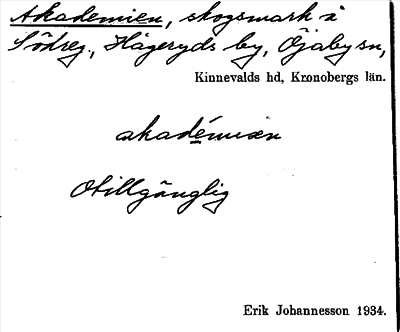 Akademien, skogsmark å
Södreg., Hågeryds by, Öjaby sn,
Kinnevalds hd, Kronobergs län.
akadémiən
Otillgänglig
Erik Johannesson 1934.